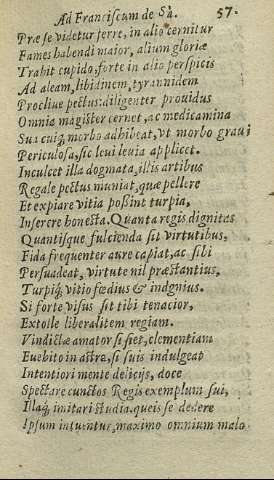 Ad Franciscum de Sà. 57.
Præ se videtur ferre, in alio cernitur
Fames habendi maior, alium gloriæ
Trahit cupido, forte in alio perspicis
Ad aleam, libidinem, tyrannidem
Proclive pectus: diligenter providus
Omnia magister cernet, ac medicamina
Sua cuiq; morbo adhibeat, vt morbo gravi
Periculosa, sic levi levia applicet.
Inculcet illa dogmata, illis artibus
Regale pectus muniat, quæ pellere
Et expiare vitia possint turpia,
Inserere honesta. Quanta regis dignitas
Quantisque fulcienda sit virtutibus,
Fida frequenter aure capiat, ac sibi
Persuadeat, virtute nil præstantius,
Turpiq; vitio fœdius & indgnius.
Si forte visus sit tibi tenacior,
Extolle liberalitem regiam.
Vindictæ amator si siet, clementiam
Euehito in astra, si suis indulgeat
Intentiori mente delicijs, doce
Spectare cunctos Regis exemplum sui,
Illaq; imitari studia. queis se dedere
Ipsum intuentur, maximo omnium malo